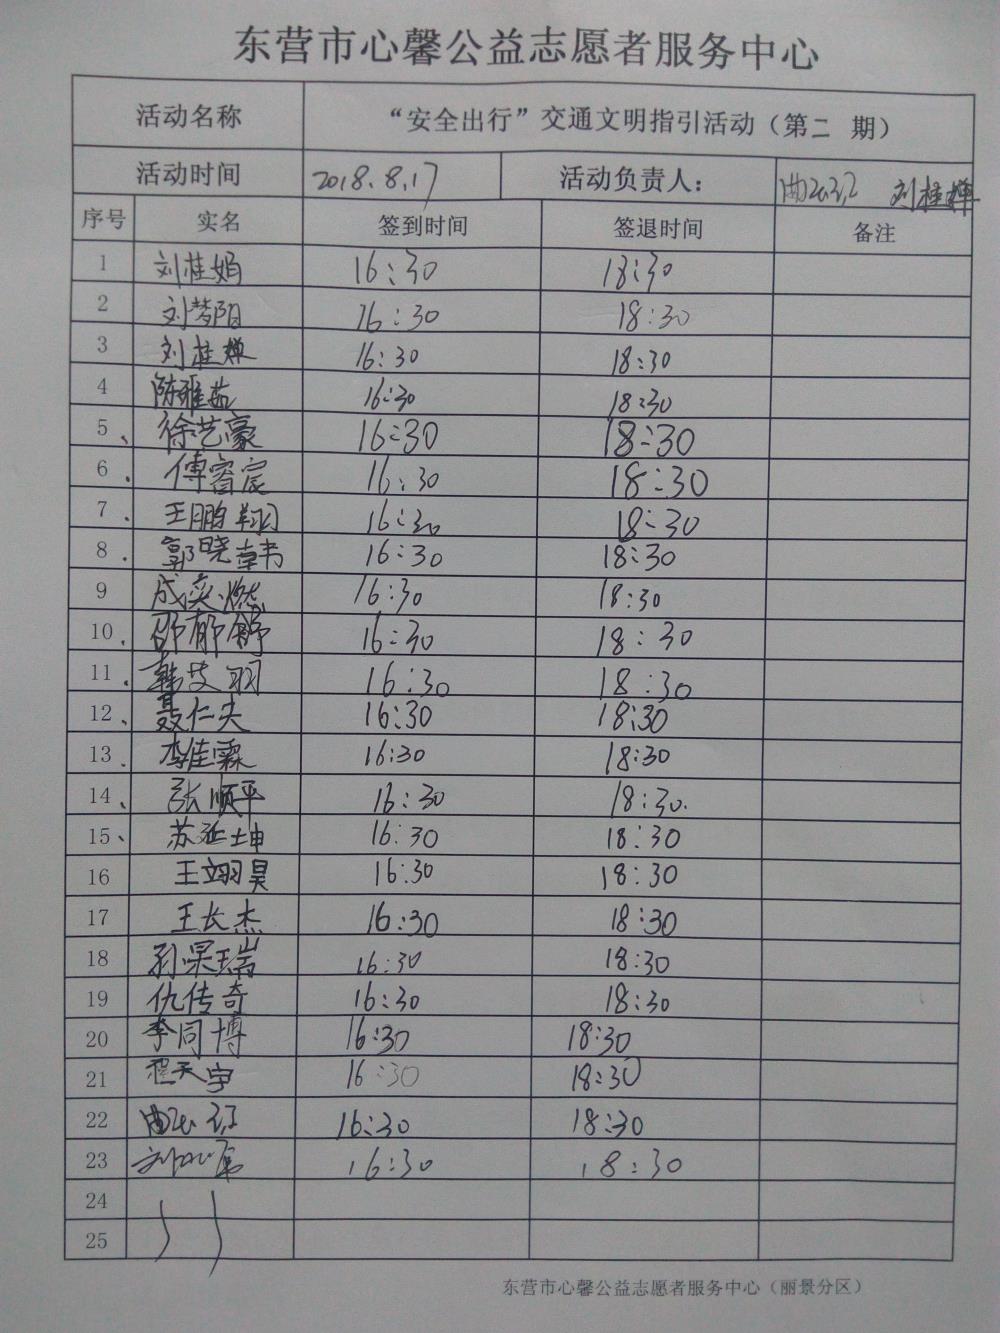 东营市心馨公益志愿者服务中心
活动名称 “安全出行”交通文明指引活动（第二 期）
活动时间 2018.8.17 活动负责人： 刘桂婵
序号 实名 签到时间 签退时间 备注
1 刘桂娟 16:30 18:30
2 刘梦阳 16:30 18:30
3 刘桂婵 16:30 18:30
4 陈雅茹 16:30 18:30
5、 徐艺豪 16:30 18:30
6. 傅睿宸 16:30 18:30
7. 王鹏翔 16:30 18:30
8. 郭晓韩 16:30 18:30
9 成奕燃 16:30 18:30
10. 邵郁舒 16:30 18:30
11. 韩艾羽 16:30 18:30
12、 聂仁夫 16:30 18:30
13. 李佳霖 16:30 18:30
14、 张顺平 16:30 18:30.
15、 苏延坤 16:30 18:30
16 王翊昊 16:30 18:30
17 王长杰 16:30 18:30
18 孙杲瑞 16:30 18:30
19 仇传奇 16:30 18:30
20 李同博 16:30 18:30
21 程天宇 16:30 18:30
22 16:30 18:30
23 16:30 18:30
24
25
东营市心馨公益志愿者服务中心（丽景分区）